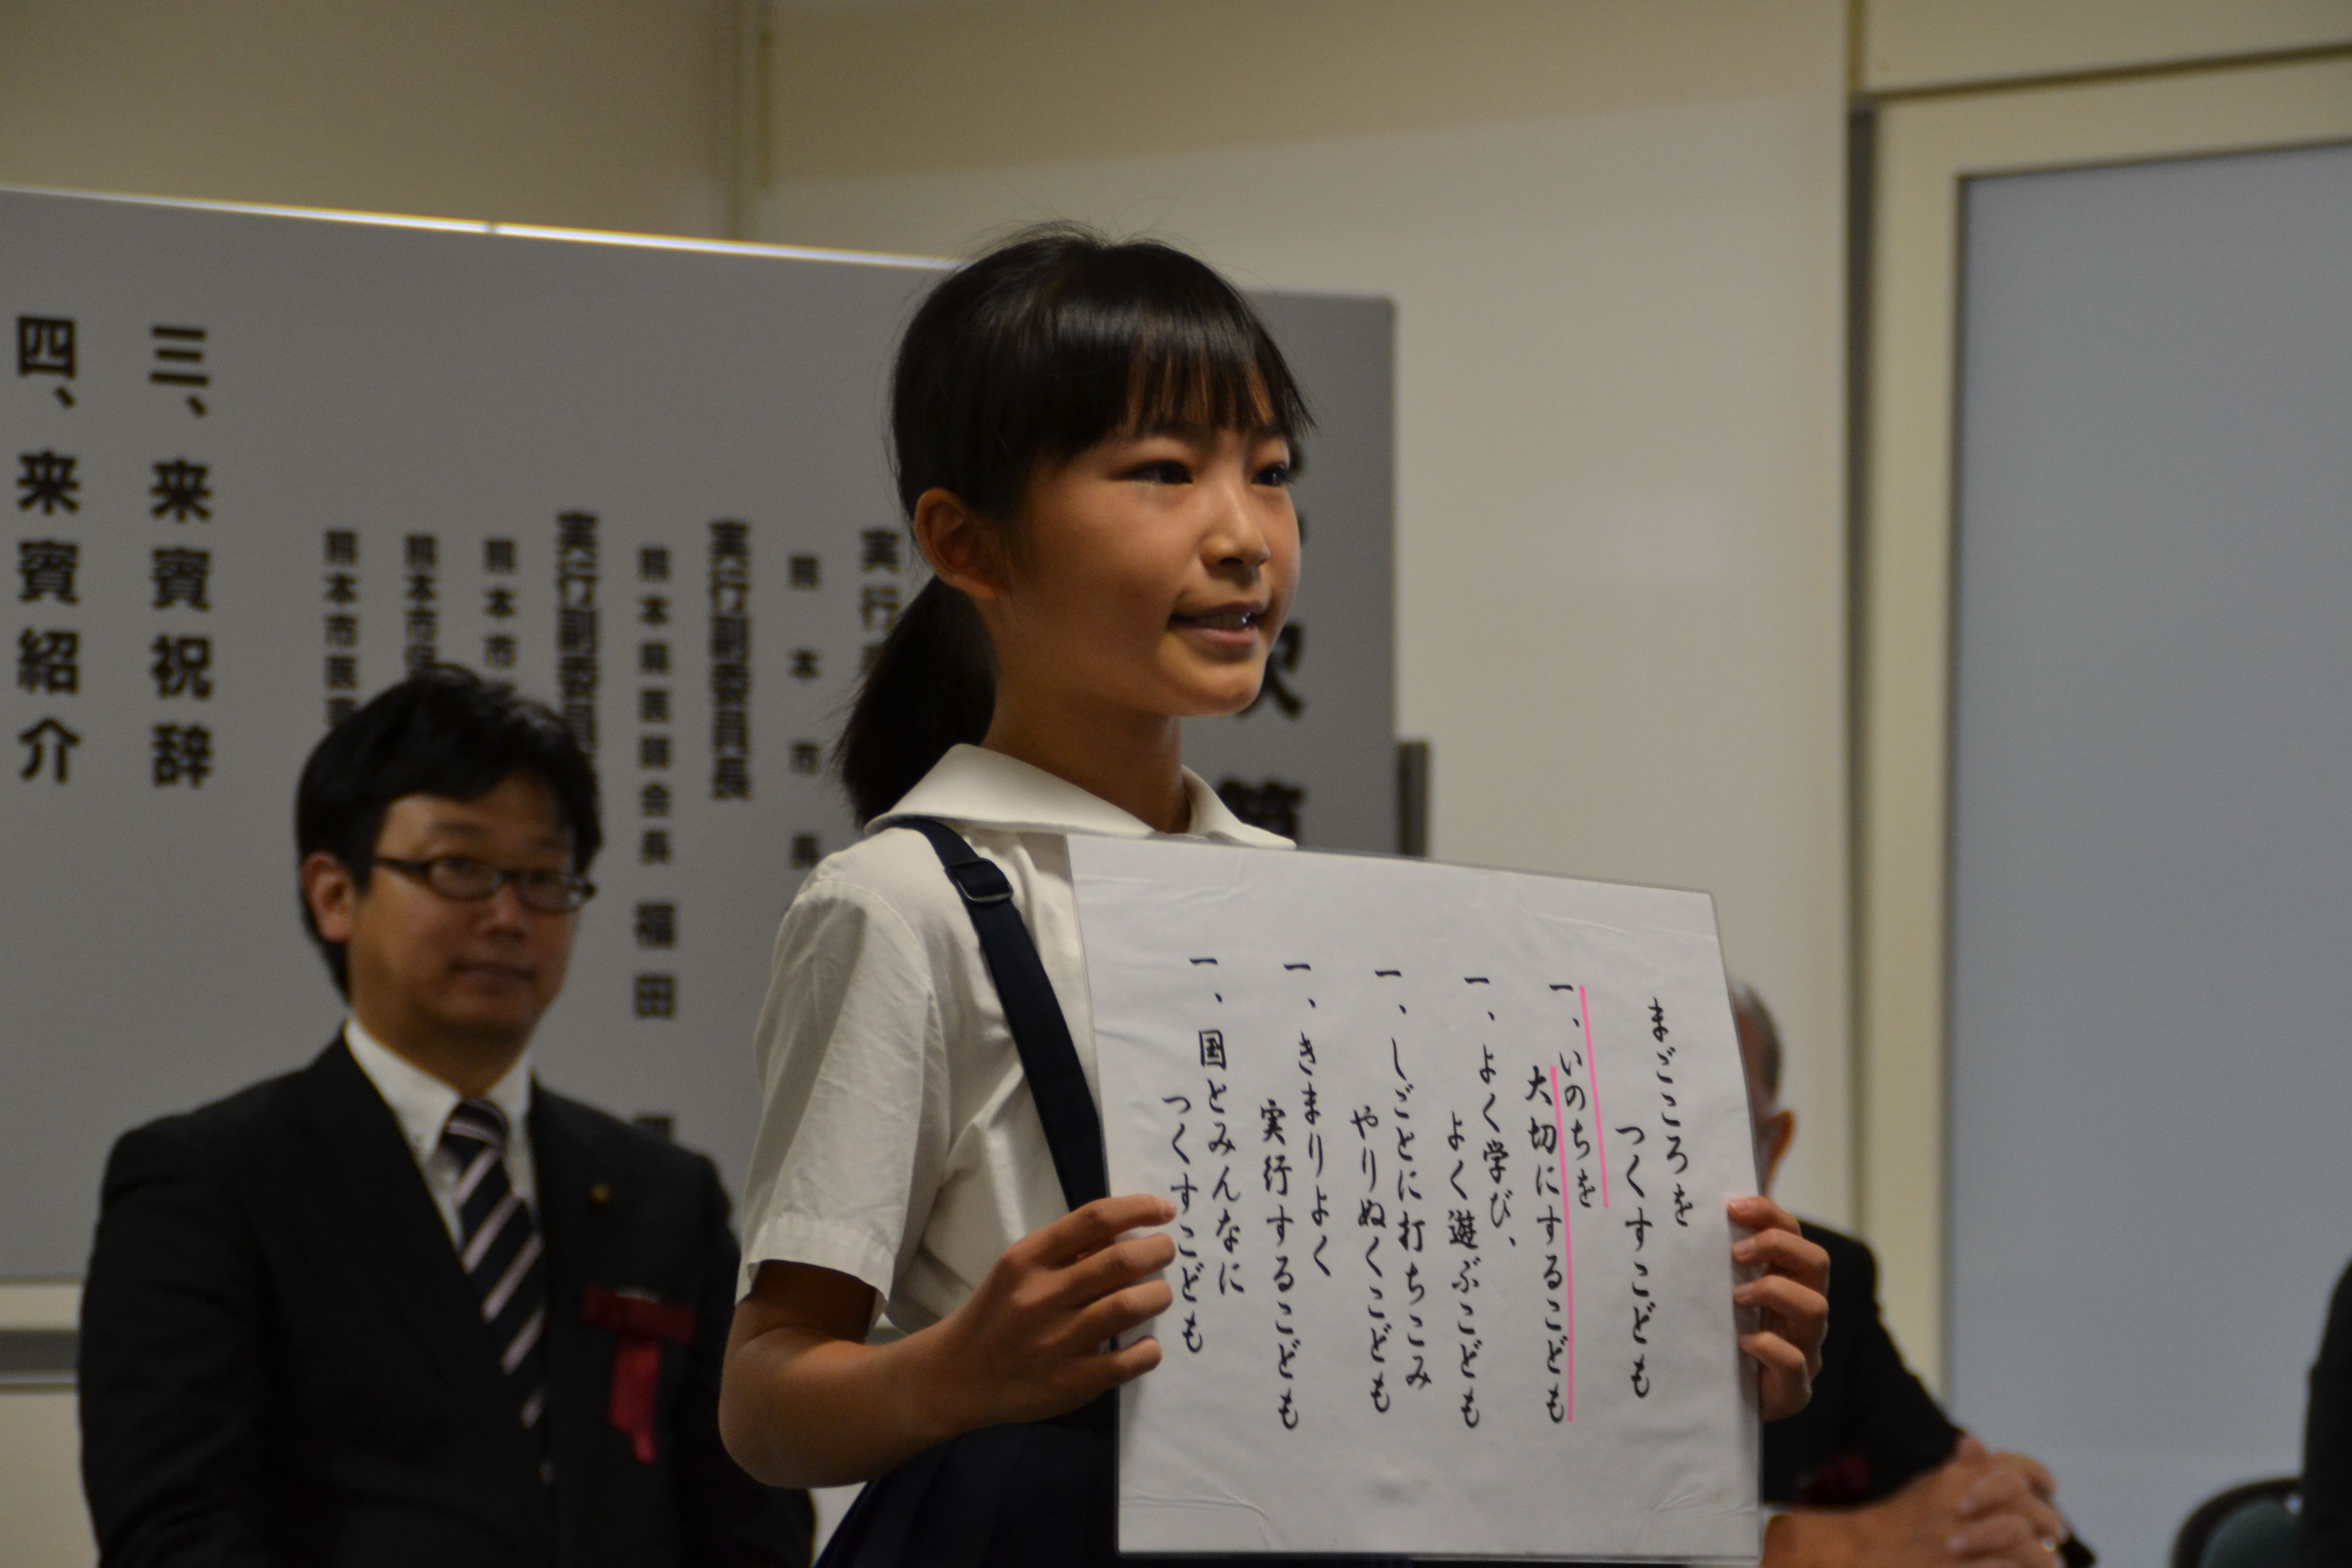 次第
実行
熊本市長
実行副委員長
熊本県医師会長 福田
実行副委員長
熊本市
熊本市
熊本市医
三、来賓祝辞
四、来賓紹介
まごころを
つくすこども
一、いのちを
大切にするこども
一、よく学び、
よく遊ぶこども
一、しごとに打ちこみ
やりぬくこども
一、きまりよく
実行するこども
一、国とみんなに
つくすこども